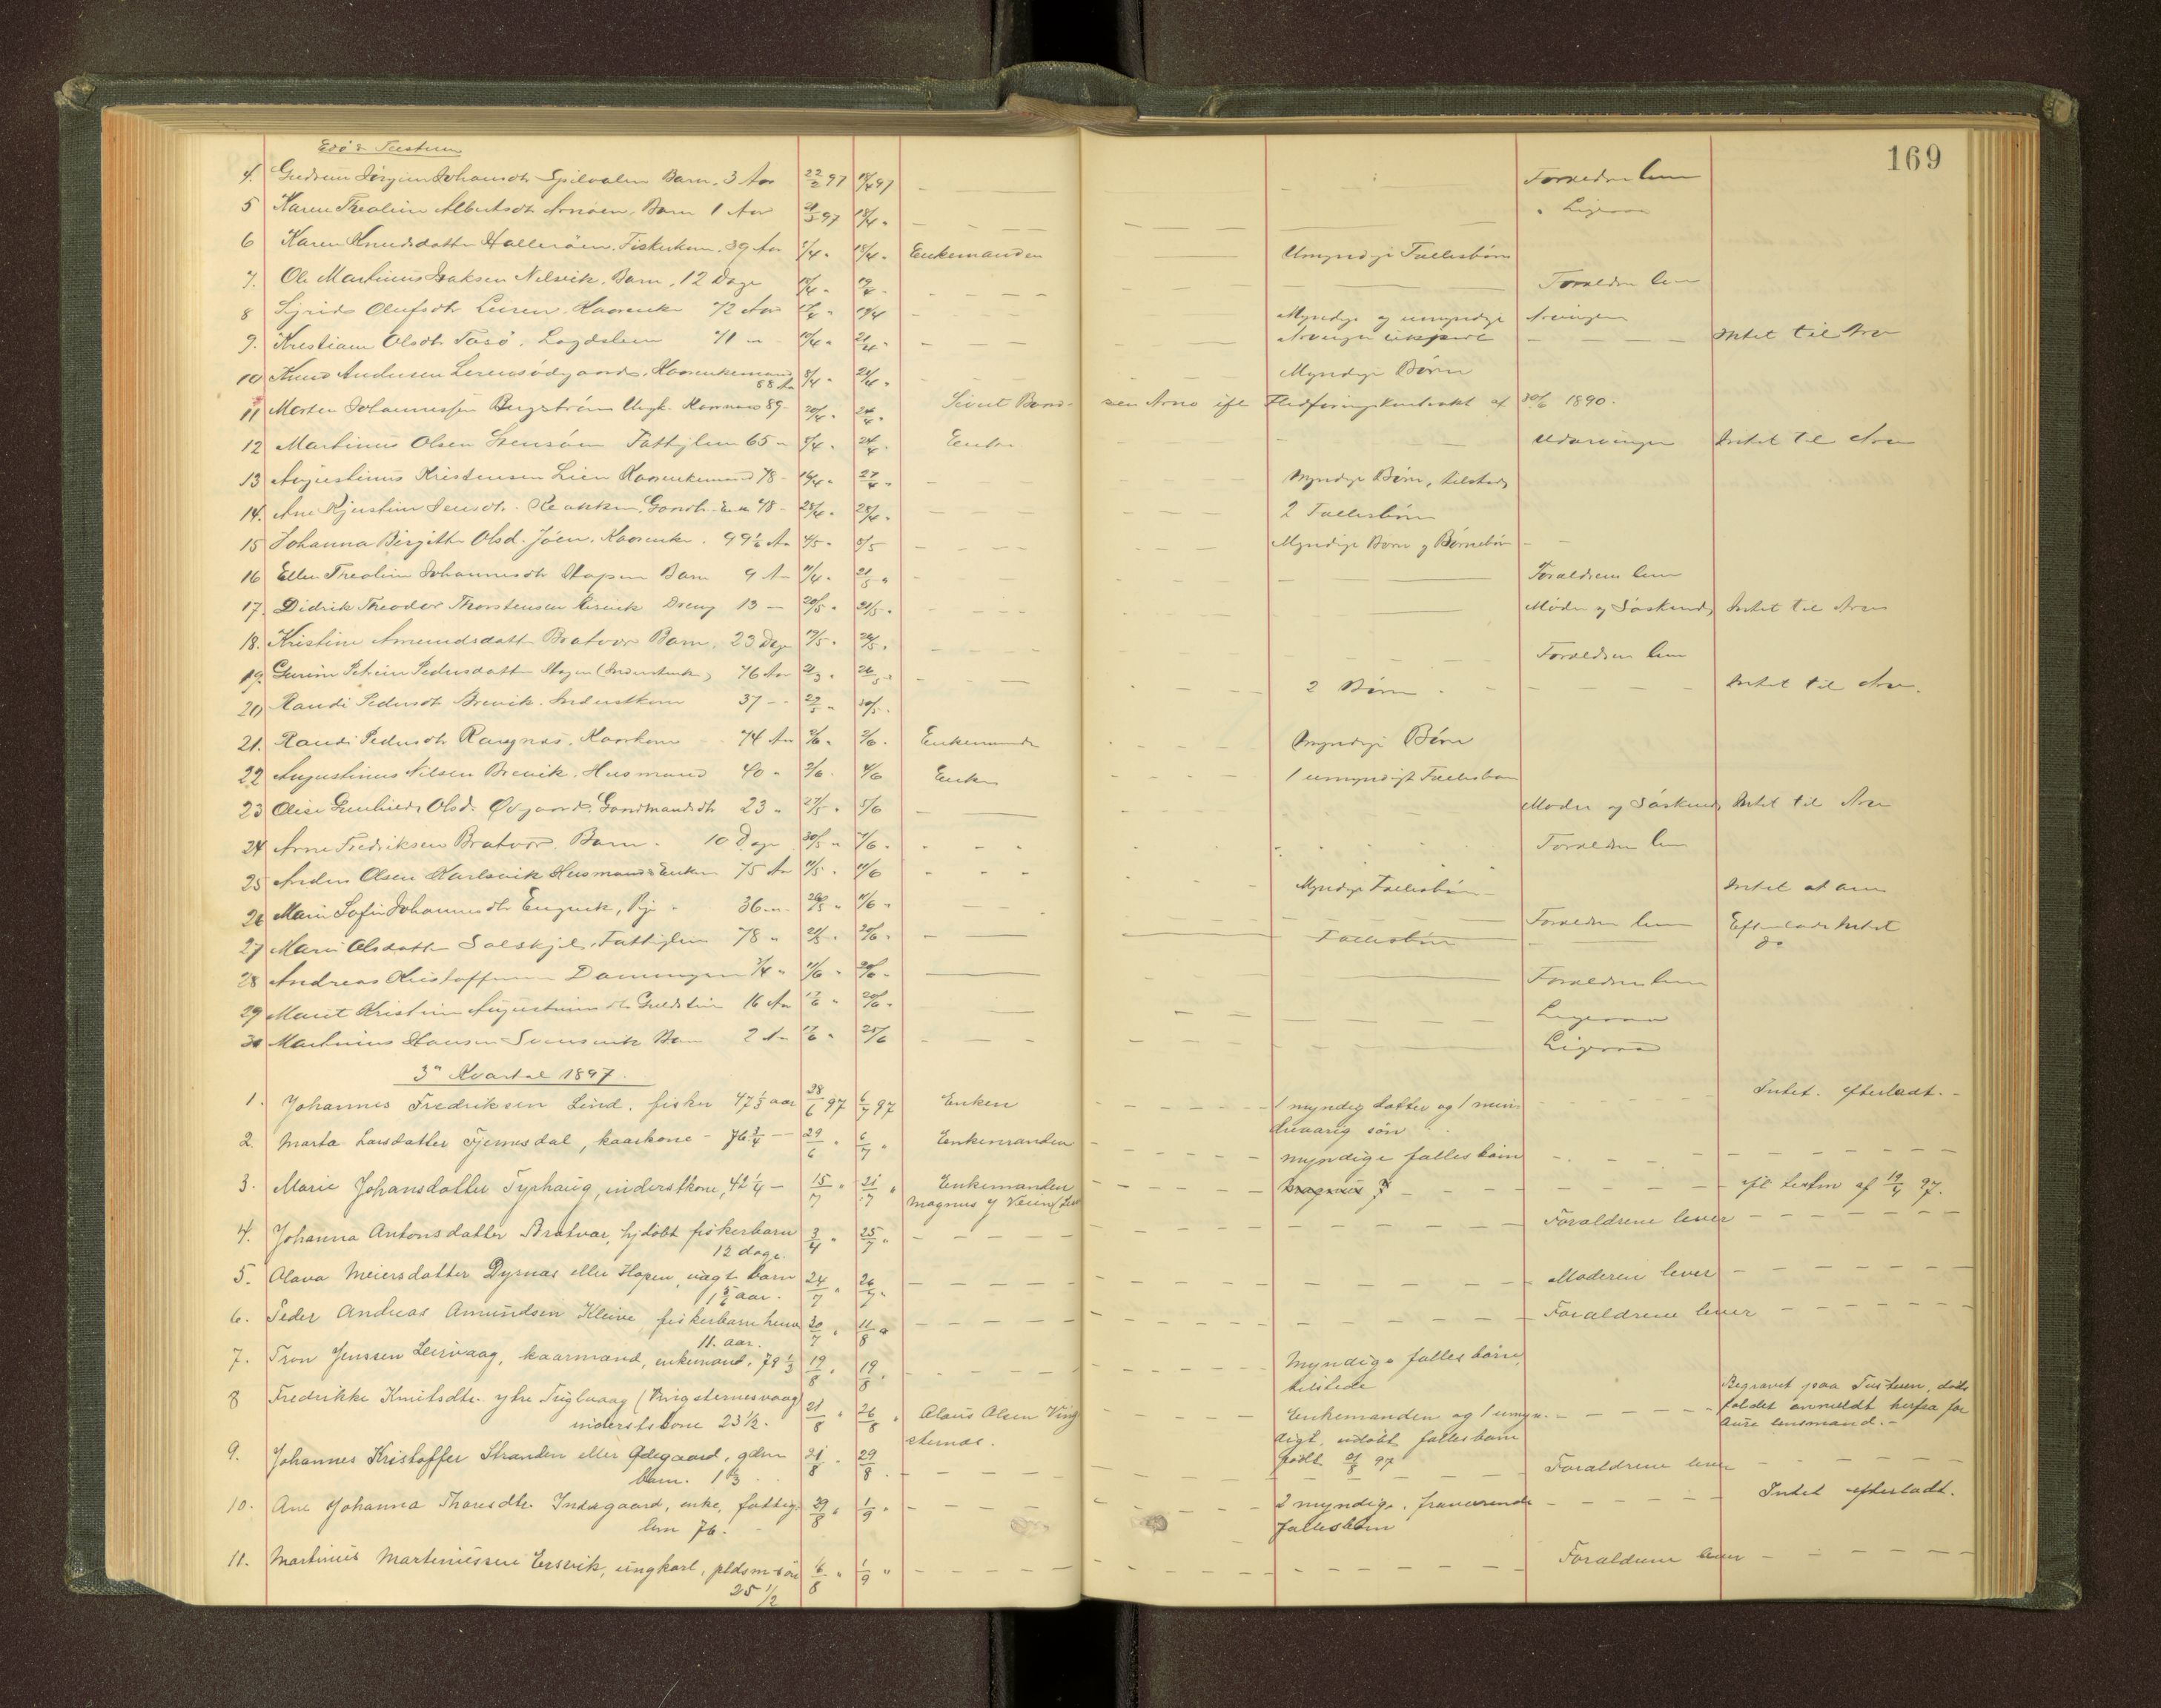 169
Edø & Tustern
4. Gudrun Jørgine Johansdtr Spilvalen Barn. 3 Aar 22/2 97 18/4 97 Forældrene leve
5 Karen Theoline Albertsdtr Arnøen, Barn 1 Aar 97 18/4 " " Ligesaa
6 Karen Knudsdatter Hallerøen. Fiskerkone. 39 Aar /4 " 18/4 " Enkemanden Umyndige Fællesbørn
7. Ole Martinius Isaksen Nelvik. Barn. 12 Dage Forældrene leve
8 Sigrid Olufsdtr Leiren. Kaarenke 72 Aar 19/4 Myndige og umyndige Arvinger
9. Kristiane Olsdtr Tøsø. Lægdslem 71 " 21/4 " Arvinger Intet til Arv
10 Knud Andersen Lerensødegaard. Kaarenkemand 88 Aar 8/4 " 24/4 " Myndige Børn
11 Morten Johannessen Bugstrøm Ungk. Kaarmand 89 - 20/4 " 24/4 " Sivert sen Arno ifl Flodføringskontrakt af 30/6 1890.
12 Martinus Olsen Stensøen Fattiglem 65 " /4 " 24/4 " Enke Udarvinger Intet til Arv
13 Augustinus Kristensen Lien Kaarenkemand 78 - 27/4 " Myndige Børn, tilstede
14. Ane Kjerstine Jensdtr. Gaardm. Enke 78 - 23/4 " 28/4 " 2 Fællesbørn
15 Johanna Birgitte Olsd. Jøen. Kaarenke. 99½ Aar 4/5 " 8/5 Myndige Børn og Børnebørn
16 Ellen Theoline Johannesdtr Hopen Barn 9 Aar 11/4 " 21/5 " Forældrene leve
17. Didrik Theodor Thorstensen Dreng 13 - 20/5 " 21/5 " Moder og Søskende Intet til Arv
18. Kristine Amundsdatter Bratvær Barn. 23 Dage 19/5 " /5 " Forældrene leve
19. Gurine Petrine Pedersdatter Hopen (Inderstenke) 76 Aar 21/3 " 26/5 " 2 Børn Intet til Arv.
20 Randi Pedersdtr Brevik. Inderstkone 37 - 22/5 " 30/5 "
21. Randi Pedersdtr Rangnæs. Kaarkone 74 Aar 2/6 " 3/6 " Enkemanden Myndige Børn
22 Augustinus Nilsen Brevik. Husmand 40 " 2/6 " 4/6 Enken 1 umyndigt Fællesbarn
23 Olise Gunhild Olsd. Øvgaard. Gaardmandsdtr 23 " 27/5 " 5/6 Moder og Søskende Intet til Arv
24 Arne Fredriksen Bratvær. Barn. 10 Dage 30/5 " 7/6 " Forældrene leve
25 Anders Olsen Karlsvik Husmands Enkem 75 Aar 11/5 " 11/6 Myndige Fællesbørn - Intet at arve
26 Marie Sofie Johannesdtr Engvik, Pige 36 " 11/6 " Forældrene leve Efterlod Intet
27 Marie Olsdatter Solskjel, Fattiglem 78 " 20/6 " Fællesbørn do
28 Andreas Kristoffersen 3/4 " 11/6 " 20/6 " Forældrene leve
29 Marit Kristine Augustinusdtr Guldstein 16 Aar 17/6 " 20/6 " Ligesaa
30 Martinius Hansen Svensvik Barn 2 Aar 17/6 " 25/6 Ligesaa
3die Kvartal 1897.
1. Johannes Fredriksen Lind. fisker 47⅓ aar 28/6 97 6/7 97 Enken 1 myndig datter og 1 min- Intet. efterladt. -
dreaarig søn
2. Marta Larsdatter Tjernesdal, kaarkone - 76¾ - 29/6 " 6/7 " Enkemanden - myndige fællesbørn
3. Marie Johansdatter Tyrhaug, inderstkone, 42¼ - 15/7 " 21/7 " Enkemanden ifl testm af 19/4 97.
Magnus J Veien
4. Johanna Antonsdatter Bratvær, hjdøbt fiskerbarn 3/4 " 25/7 " Forældrene lever
12 dage.
5. Olava Meiersdatter Dyrnæs eller Hopen, uægt barn 24/7 " 26/7 " Moderen lever
1 5/6 aar.
6. Peder Andreas Amundsen Kleive fiskerbarn 30/7 " 11/8 " Forældrene lever
11. aar.
7. Tron Jenssen Leirvaag, kaarmand, enkemand, 79⅓ 19/8 " 19/8 " Myndige fællesbørn,
tilstede
8 Fredrikke Knutsdtr. ytre Tuglvaag (Vingsternesvaag) 21/8 " 26/8 " Claus Olsen Ving- Enkemanden og 1 umyn- Begravet paa Tustern, døds
inderstskone 23½. sternæs. digt, udøbt fællesbarn faldet anmeldt herfra for
født /8 97 Aure lensmand. -
9. Johannes Kristoffer Stranden eller Ødegaard, gdm 21/8 " 29/8 " Forældrene lever
barn. 1⅓
10. Ane Johanna Tharesdtr. Indergaard, enke, fattig- 29/8 " 1/9 " 2 myndige, fraværende Intet efterladt.
lem 76. fællesbørn
11. Martinus Martinussen Ersvik, ungkarl, pldsm søn 6/8 " 1/9 " Forældrene lever
25½